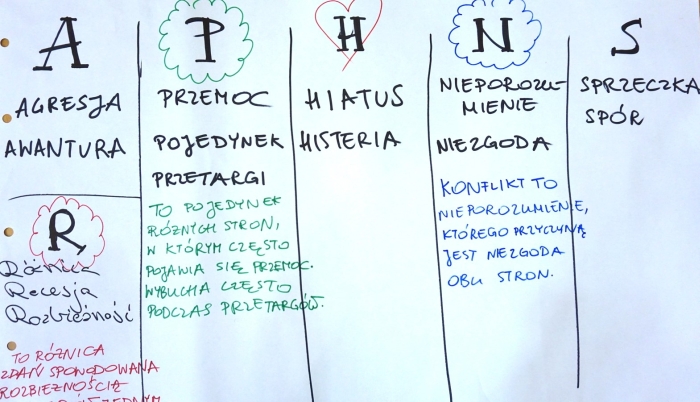 A
AGRESJA
AWANTURA
R
Różnica
Recesja
Rozbieżność
TO RÓŻNICA
ZDAŃ SPOWODOWANA
ROZBIEŻNOŚCIĄ
P
PRZEMOC
POJEDYNEK
PRZETARGI
TO POJEDYNEK
RÓŻNYCH STRON,
W KTÓRYM CZĘSTO
POJAWIA SIĘ PRZEMOC.
WYBUCHA CZĘSTO
PODCZAS PRZETARGÓW.
H
HIATUS
HISTERIA
N
NIEPOROZU-
MIENIE
NIEZGODA
KONFLIKT TO
NIEPOROZUMIENIE,
KTÓREGO PRZYCZYNĄ
JEST NIEZGODA
OBU STRON.
S
SPRZECZKA
SPÓR